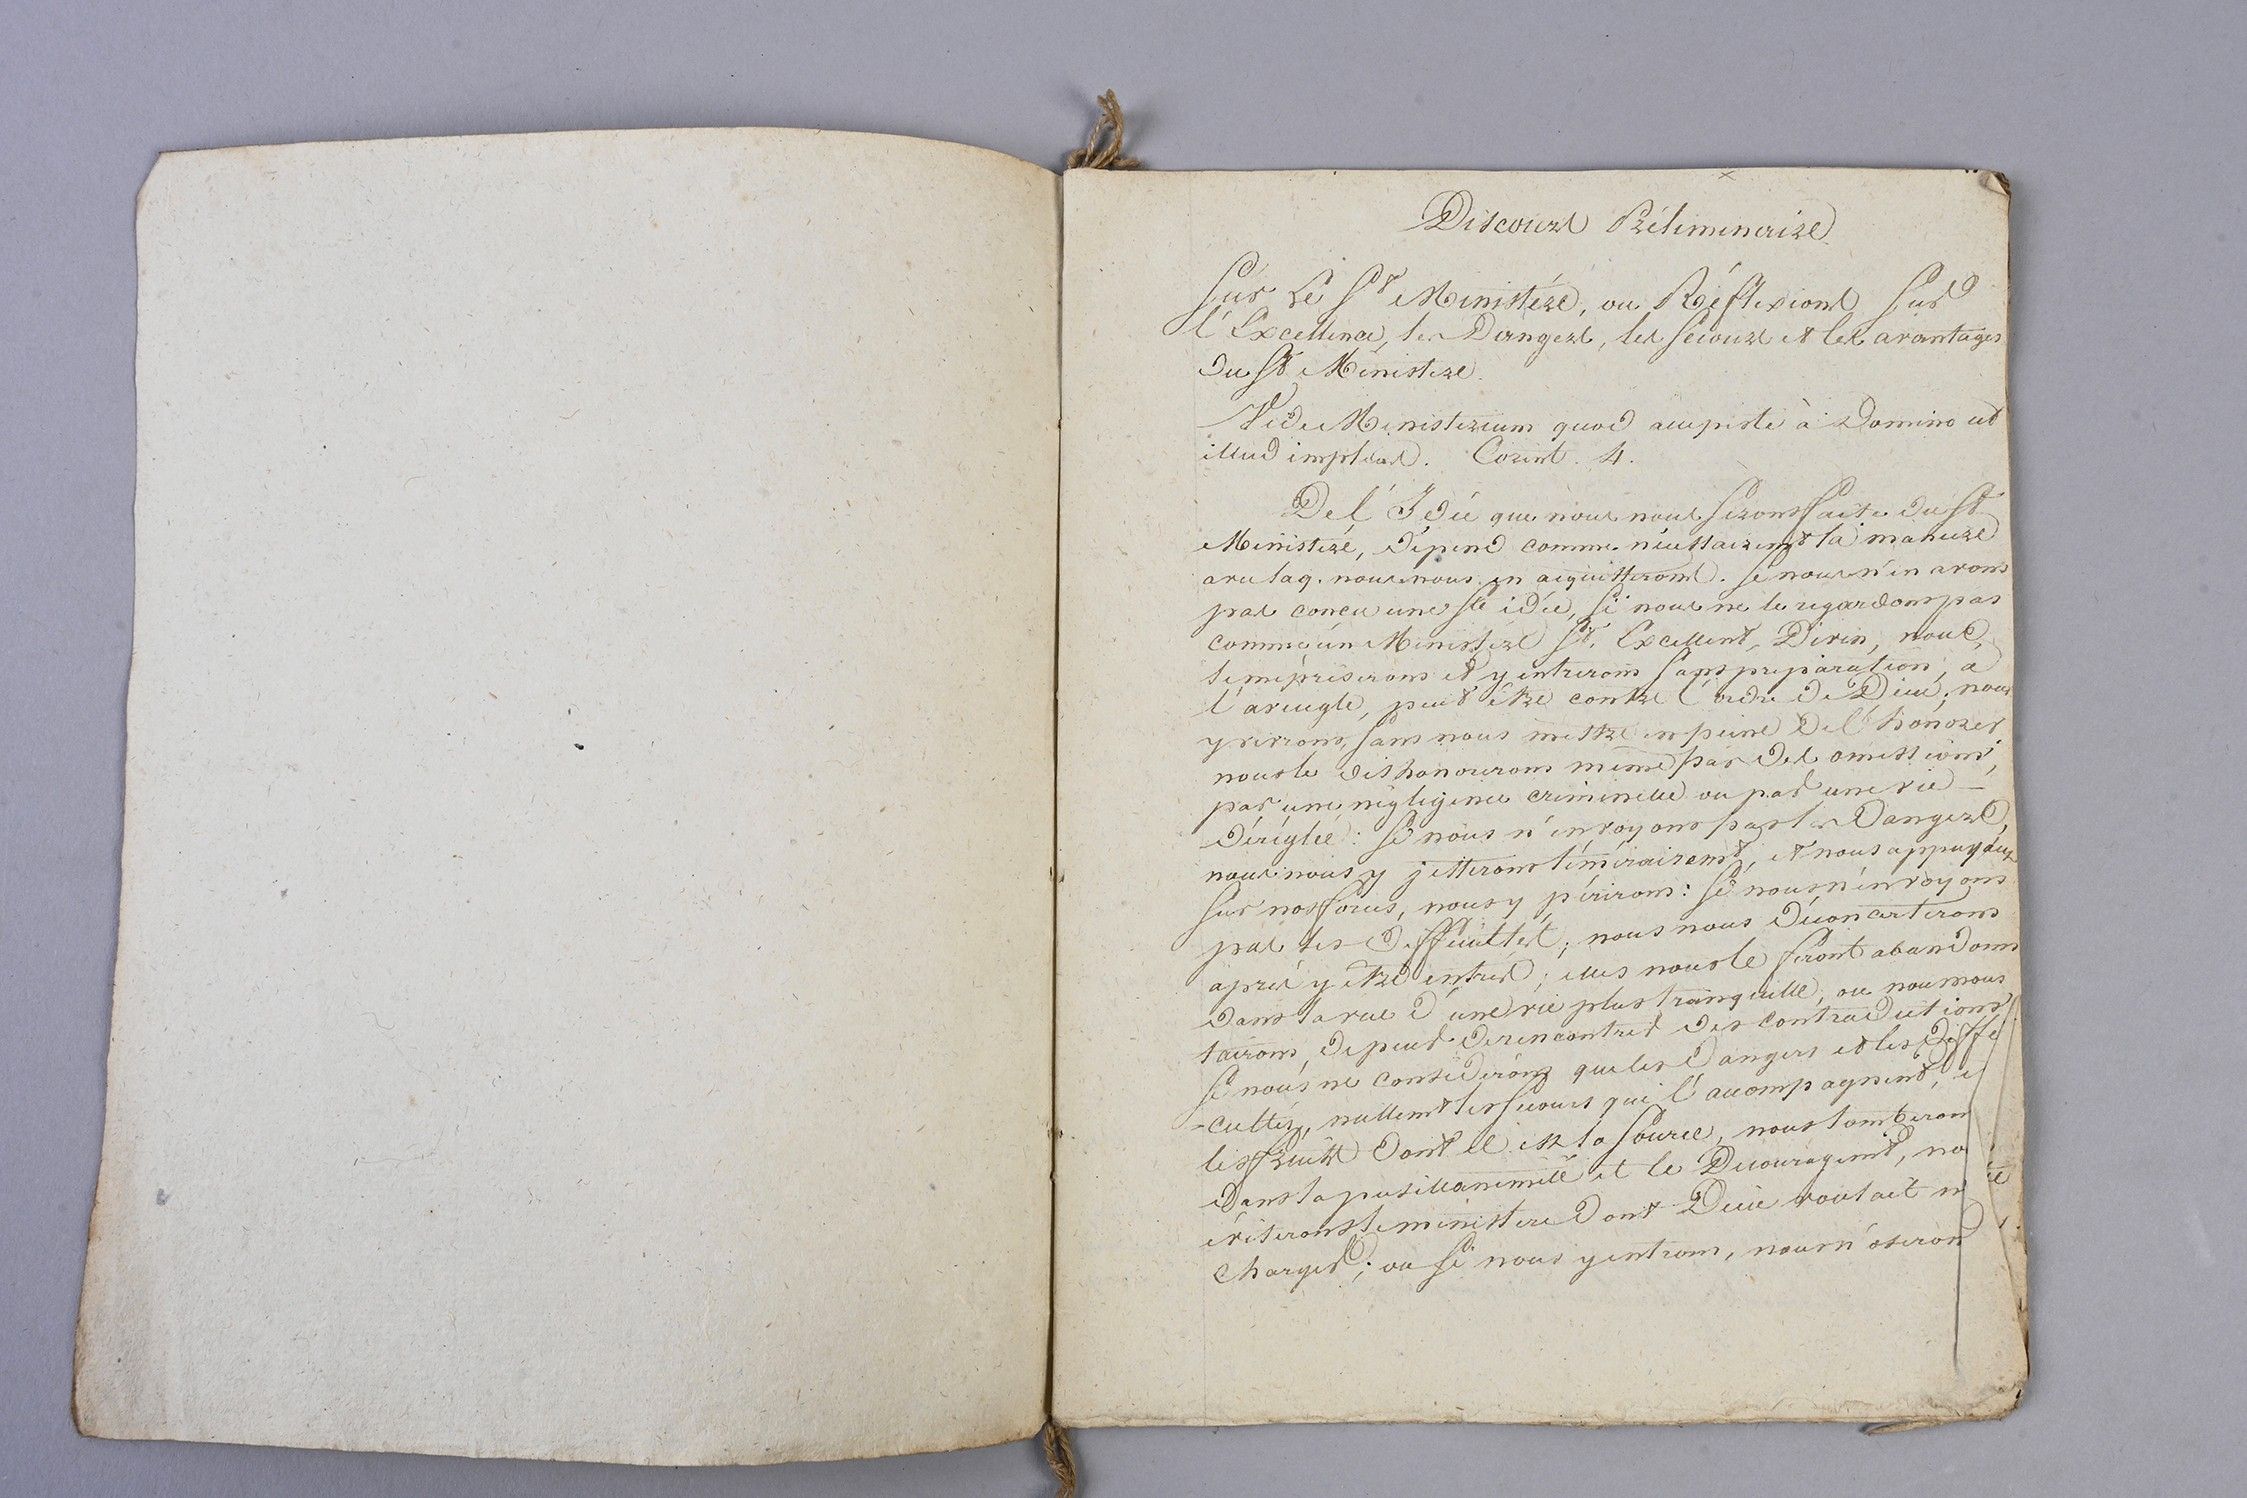 Discours Préliminaire
Sur Le St Ministére, ou Réflexions Sur
l'Excellence, les Dangers, les Secours et les avantages
du St Ministere.
Vide Ministerium quod accepisti à Domino ut
illud impleas. Corint. 4.
De l'Idée que nous nous serons faite du St
Ministére, dépend comme nécessairemt la maniere
avec laq. nous nous en acquitterons. Si nous n'en avons
pas conçu une Ste idée, Si nous ne le regardons pas
comme un Ministère St, Excellent, Divin, nous
le mépriserons et y entrerons sans preparation, a
l'aveugle, peut être contre l'ordre de Dieu; nous
y vivrons, sans nous mettre en peine de l'honorer
nous le dishonorerons même par des omissions,
par une négligence criminelle ou par une vie
déréglée: Si nous n'en voyons pas les Dangers,
nous nous y jetterons témérairemt, et nous appuyant
sur nos forces, nous y périrons: Si nous n'en voyons
pas les Difficultés, nous nous déconcerterons
après y être entrés; elles nous le feront abandonner
dans la vue d'une vie plus tranquille, ou nous nous
tairons, de peur de rencontrer des contradictions
Si nous ne considérons que les Dangers et les Diffi
-cultés, nullemt les secours qui l'accompagnent, e
les fruits dont il est la source, nous tomberon
dans la pusillanimité et le Découragemt, no
éviterons le ministere dont Dieu voulait n
charger; ou si nous y entrons, nous n'oseron